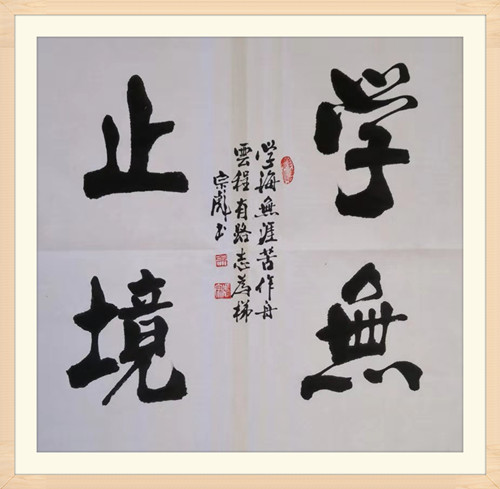 学無
止境
学海無涯苦作舟
雲程有路志為梯
宗彪书